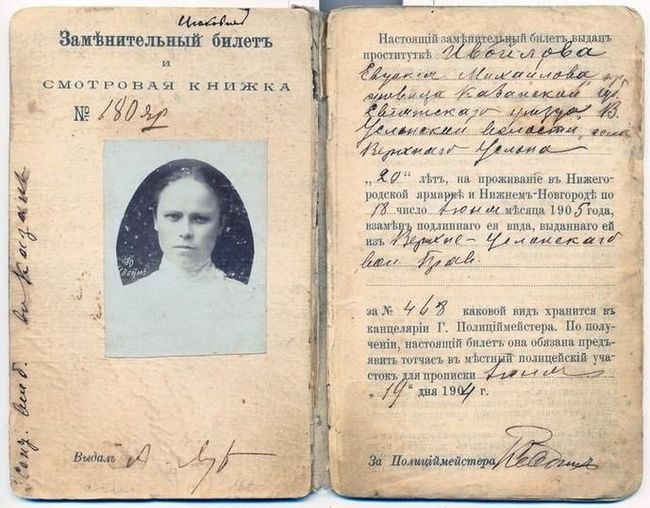 Замѣнительный билетъ
и
СМОТРОВАЯ КНИЖКА
№ 180 яр
180
Выдалъ
Настоящій замѣнительный билетъ выданъ
проституткѣ Ивойлова
Евдокія Михайлова кре
Казанской губ
Свіяжскаго уѣзда, В.
Услонской волости, села
Верхняго Услона
„20“ лѣтъ, на проживаніе въ Нижего-
родской ярмаркѣ и Нижнемъ-Новгородѣ по
18 число Іюня мѣсяца 1905 года,
взамѣнъ подлиннаго ея вида, выданнаго ей
изъ Верхне-Услонскаго
вол Прав.
за № 468 каковой видъ хранится въ
канцеляріи Г. Полиціймейстера. По полу-
ченіи, настоящій билетъ она обязана предъ-
явить тотчасъ въ мѣстный полицейскій уча-
стокъ для прописки Іюня
„19“ дня 1904 г.
За Полиціймейстера